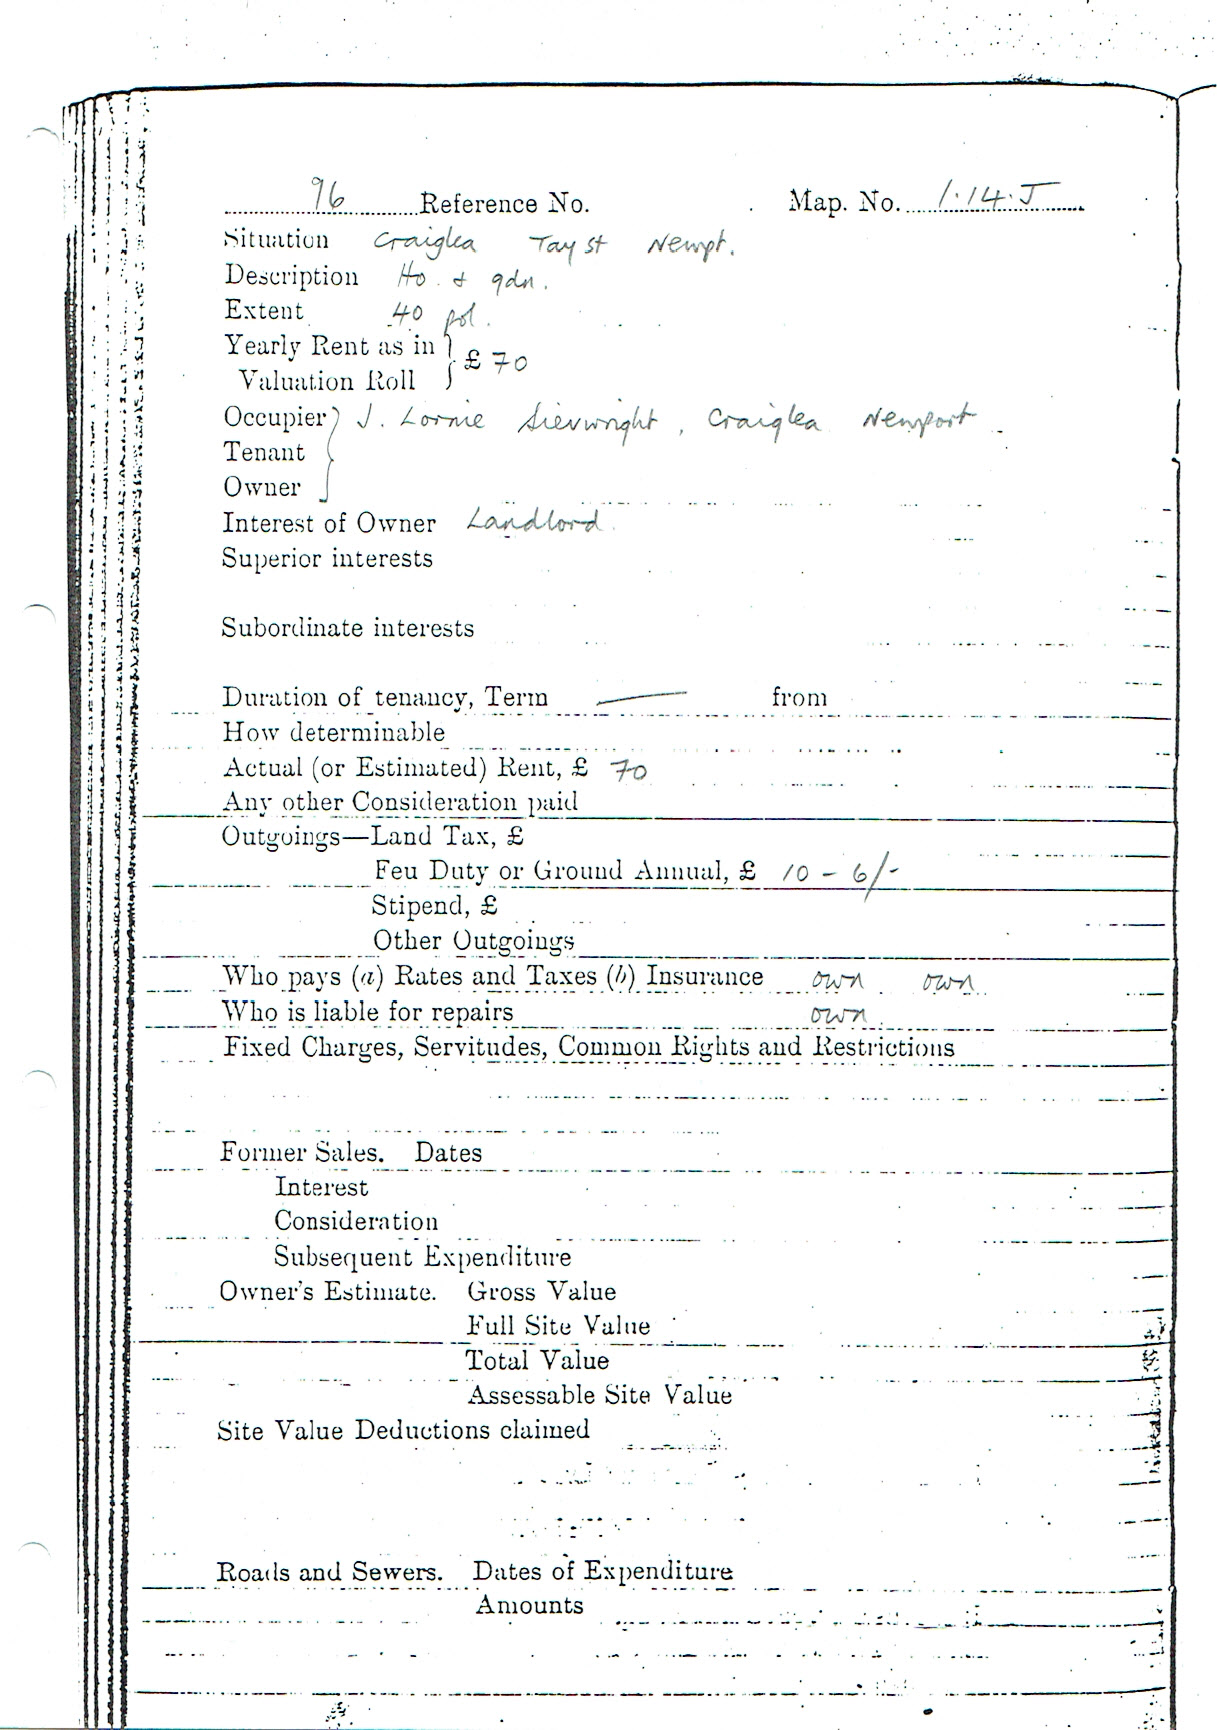 96 Reference No. Map. No. 1.14.J
Situation Craiglea Tay st Newpt.
Description Ho. & gdn.
Extent 40 pol.
Yearly Rent as in
Valuation Roll } £ 70
Occupier } J. Lornie Sievwright, Craiglea Newport
Tenant
Owner
Interest of Owner Landlord
Superior interests
Subordinate interests
Duration of tenancy, Term — from
How determinable
Actual (or Estimated) Rent, £ 70
Any other Consideration paid
Outgoings—Land Tax, £
Feu Duty or Ground Annual, £ 10 - 6/-
Stipend, £
Other Outgoings
Who pays (a) Rates and Taxes (b) Insurance own own
Who is liable for repairs own
Fixed Charges, Servitudes, Common Rights and Restrictions
Former Sales. Dates
Interest
Consideration
Subsequent Expenditure
Owner's Estimate. Gross Value
Full Site Value
Total Value
Assessable Site Value
Site Value Deductions claimed
Roads and Sewers. Dates of Expenditure
Amounts